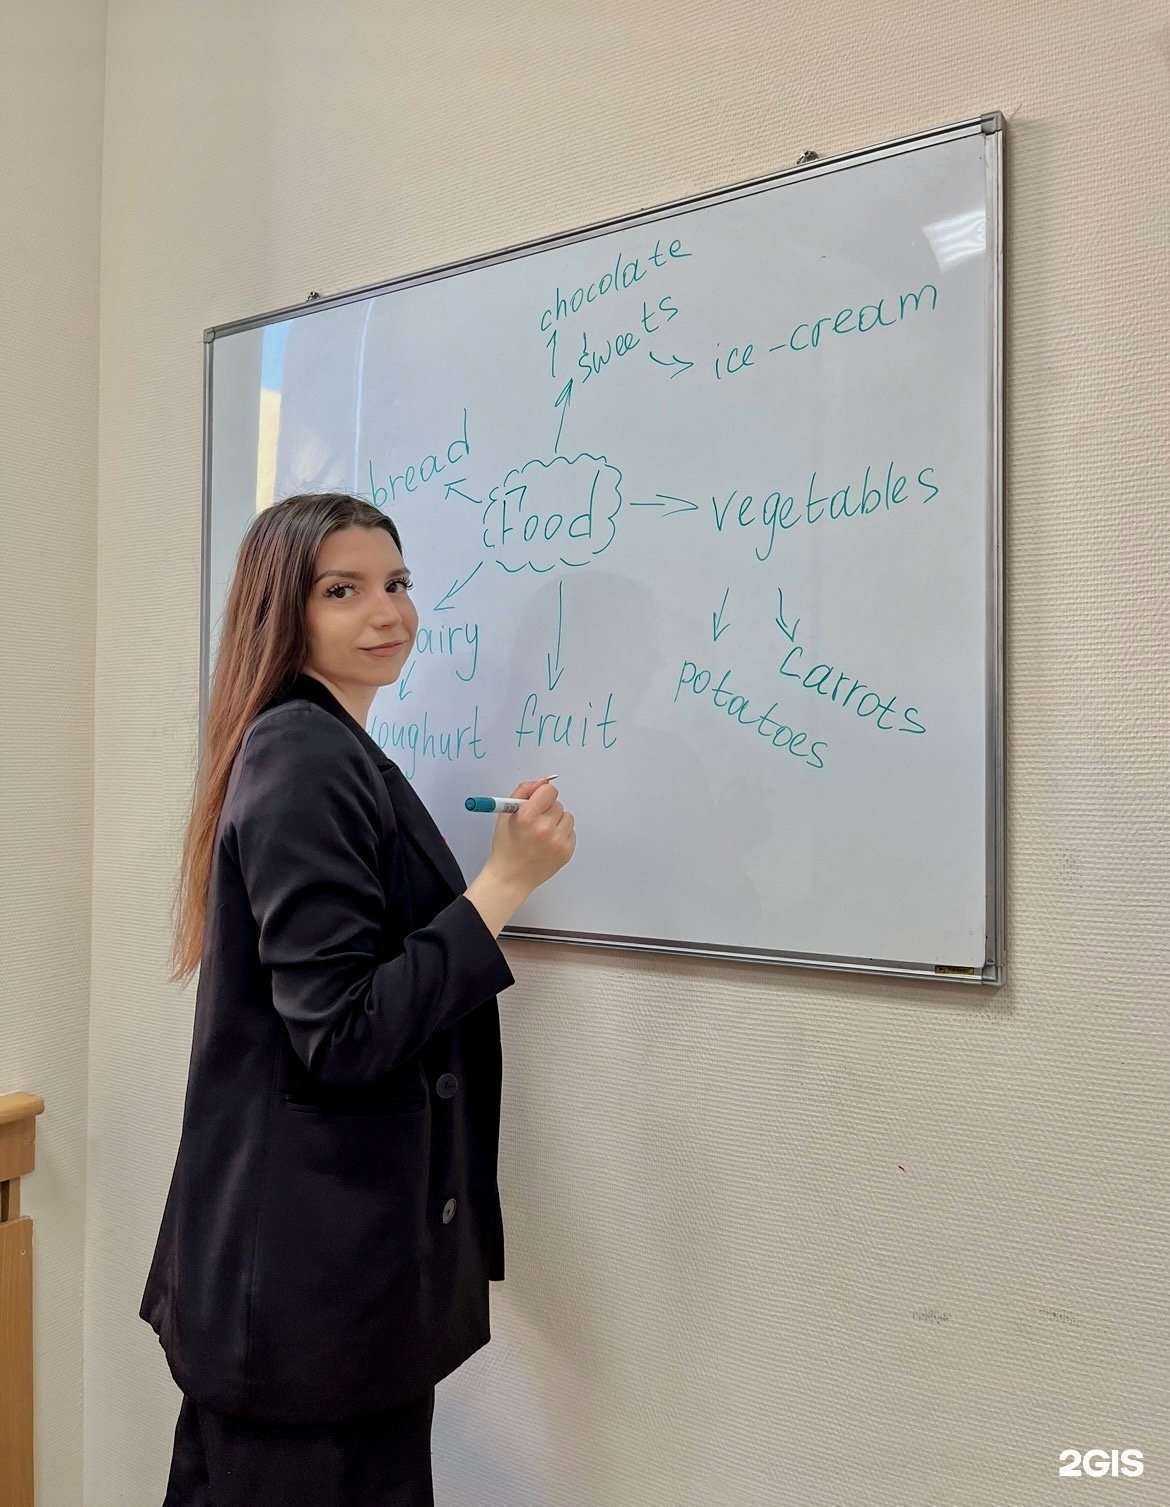 chocolate
sweets
ice-cream
bread
Food
vegetables
airy
potatoes
carrots
oughurt
fruit
2GIS